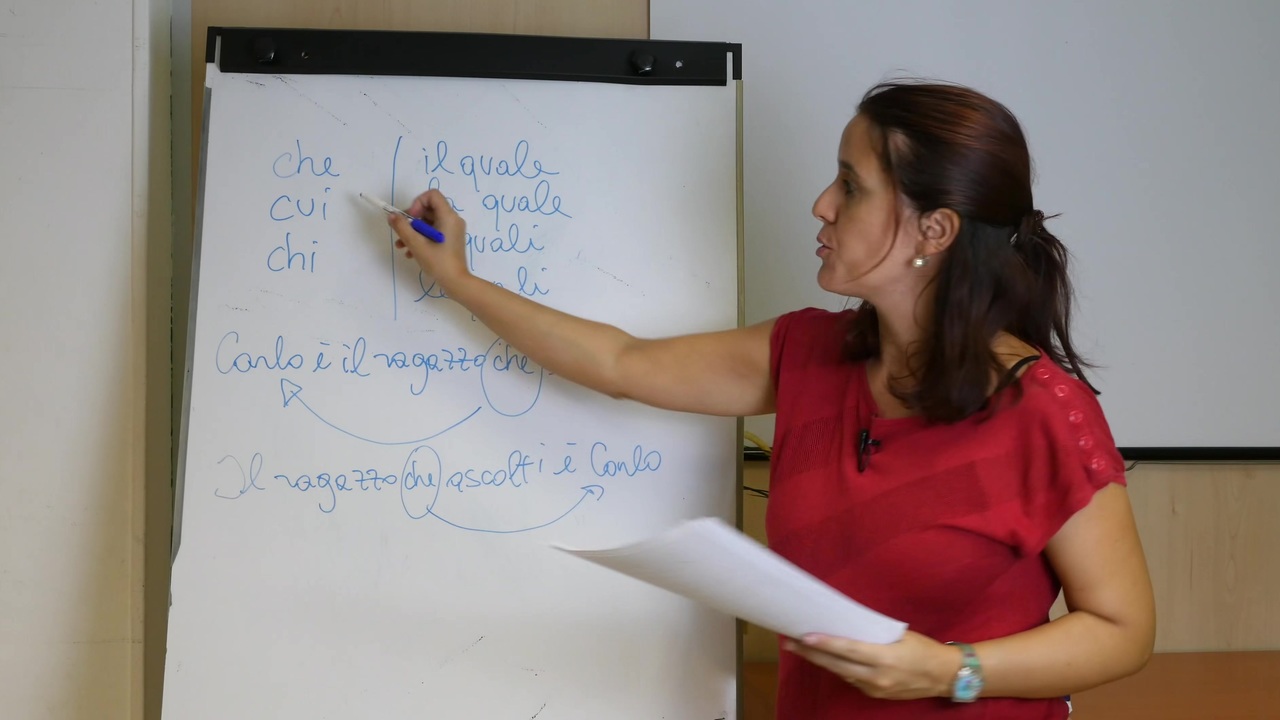 che
cui
chi
il quale
quale
quali
Carlo è il ragazzo che
Il ragazzo che ascolti è Carlo